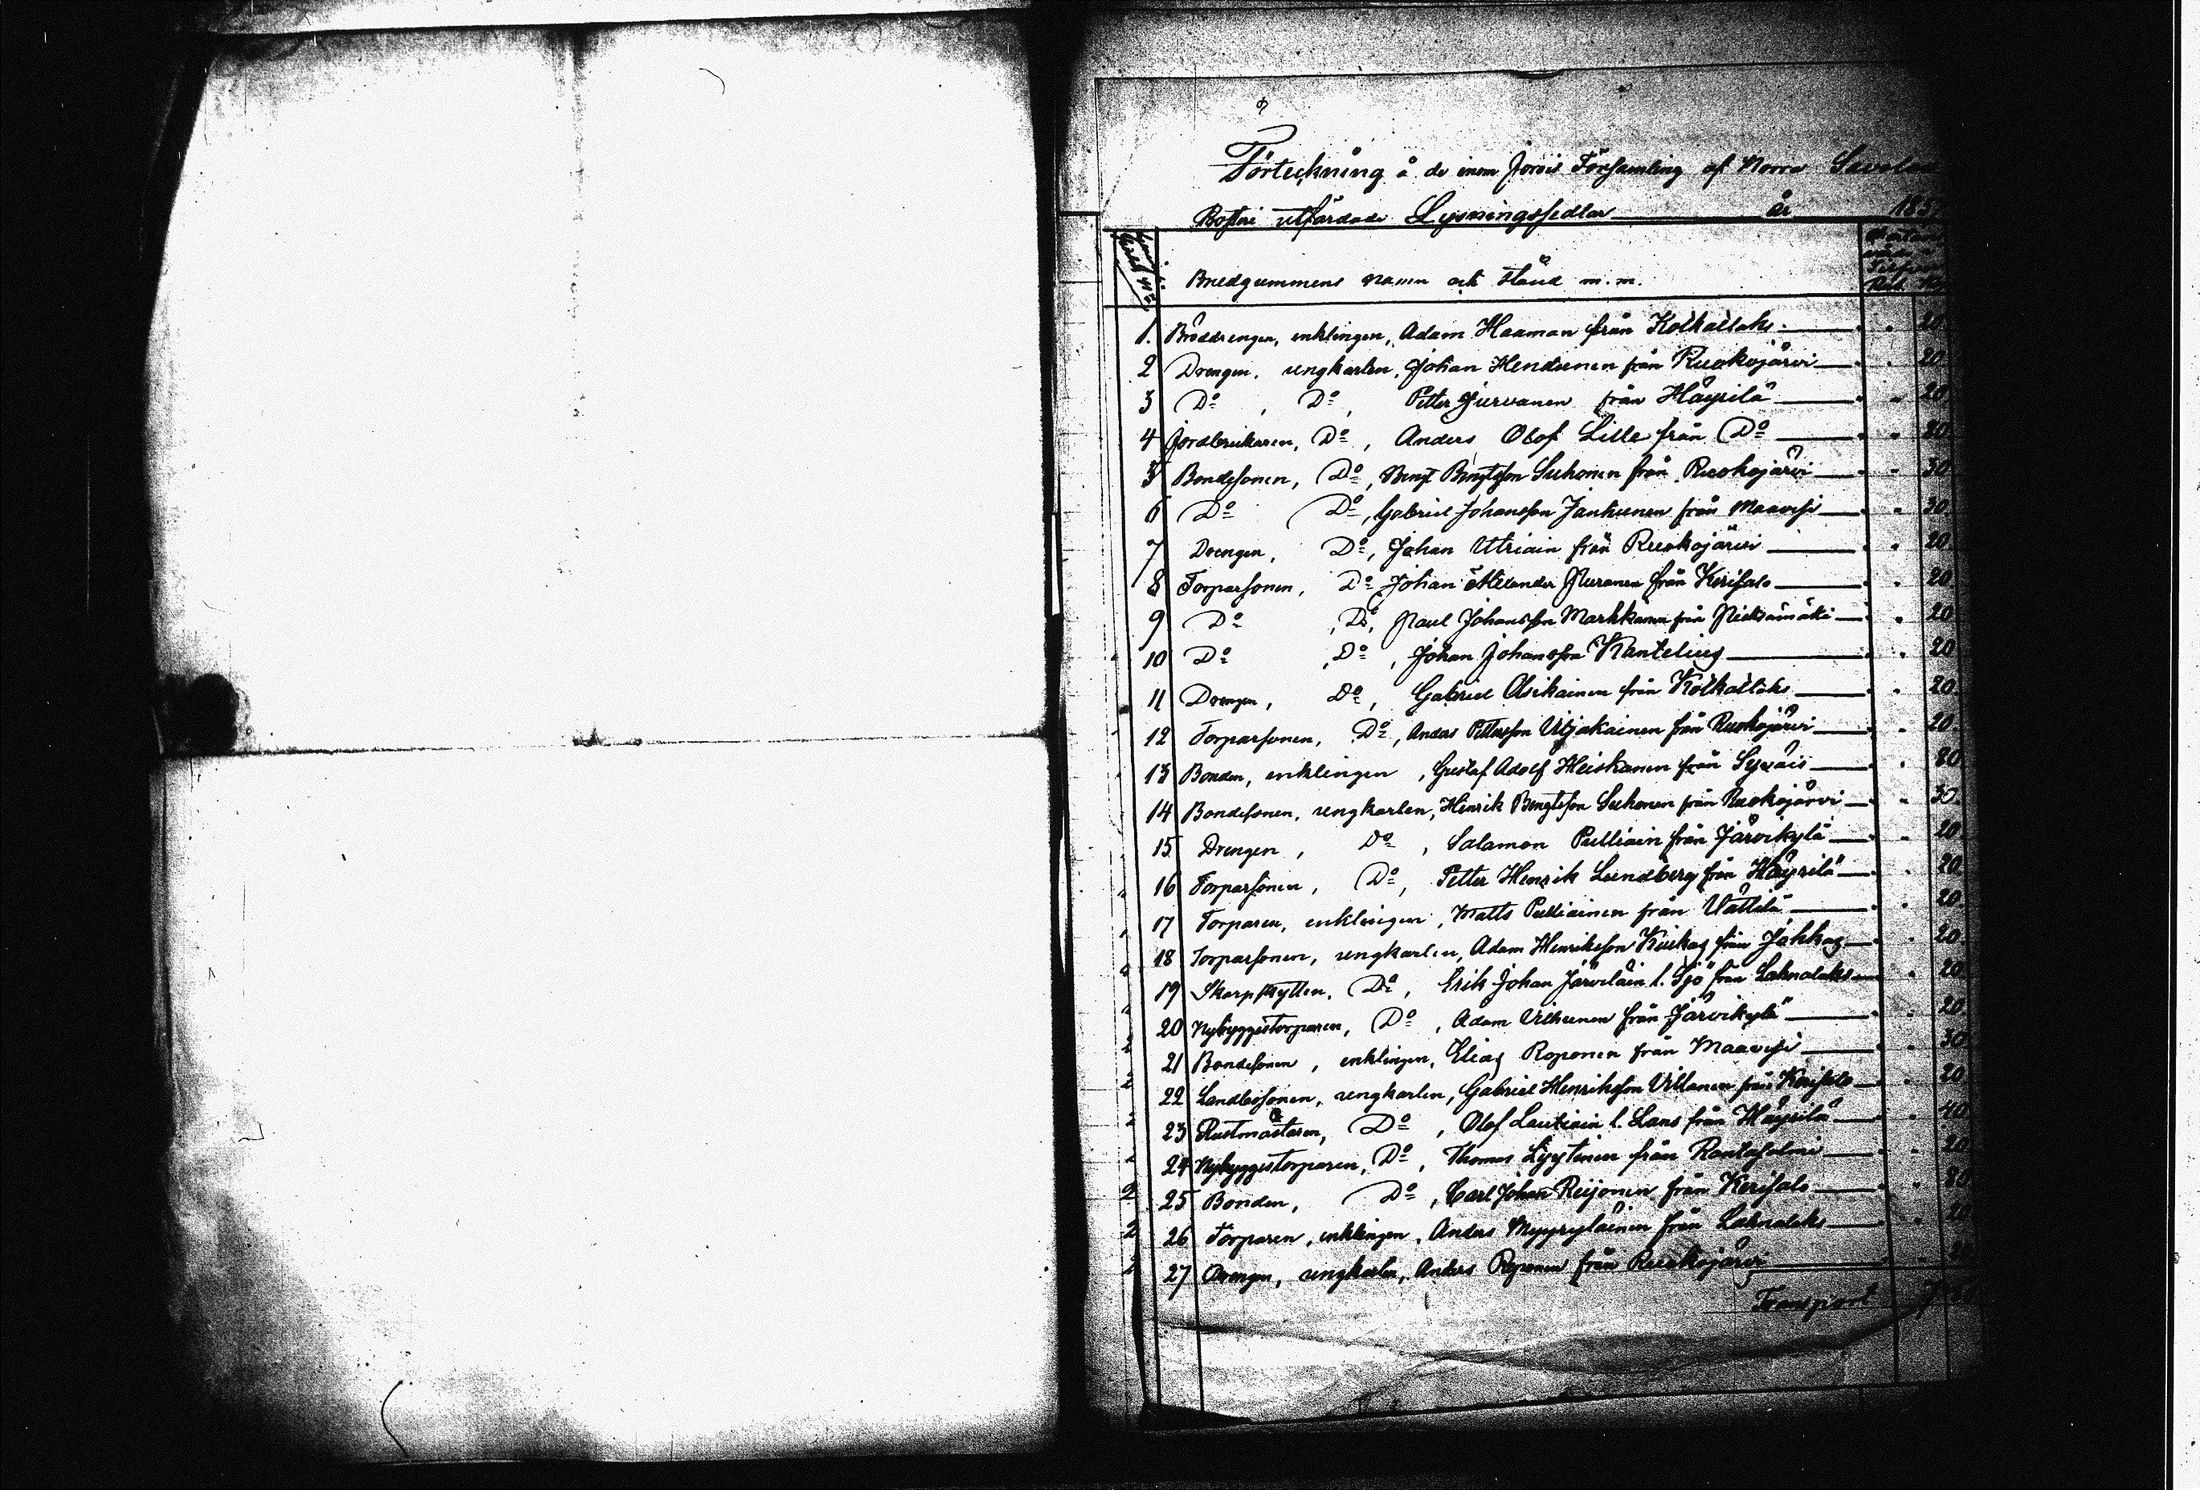 Förteckning å de inom Jorois Församling af Norra Savolax
Prosteri utfärdade Lysningssedlar år 185
Brudgummens namn och stånd m.m.
1. Bröddrengen, enklingen, Adam Haaman från Kolkallaks 20
2 Drengen, ungkarlen, Johan Hendunen från Ruokojärvi 20
3 Do, Do, Petter Jurvanen från Häyrilä 20
4 Jordbrukaren, Do, Anders Olof Lille från Do 20
5 Bondesonen, Do, Bengt Bengtsson Suhonen från Ruokojärvi 30
6 Do Do, Gabriel Johansson Jantunen från Maavesi 30
7 Drengen, Do, Johan Utriain från Ruokojärvi 20
8 Torparsonen, Do Johan Alexander Puranen från Kerisalo 20
9 Do, Do, Paul Johansson Markkanen från Pieksämäki 20
10 Do, Do, Johan Johansson Kantelius 20
11 Drengen, Do, Gabriel Asikainen från Kolkallaks 20
12 Torparsonen, Do, Anders Pettersson Viljakainen från Ruokojärvi 20
13 Bonden, enklingen, Gustaf Adolf Heiskanen från Syväis 80
14 Bondesonen, ungkarlen, Henrik Bengtsson Suhonen från Ruokojärvi 30
15 Drengen, Do, Salamon Pulliain från Järvikylä 20
16 Torparsonen, Do, Petter Henrik Lundberg från Häyrilä 20
17 Torparen, enklingen, Matts Pulliainen från Vättilä 20
18 Torparsonen, ungkarlen, Adam Henriksson Kiukas från Jähkas 20
19 Skarpskytten, Do, Erik Johan Järviläin l. Sjö från Lahnalaks 20
20 Nybyggestorparen, Do, Adam Vilhunen från Järvikylä 20
21 Bondesonen, enklingen, Elias Roponen från Maavesi 30
22 Landbosonen, ungkarlen, Gabriel Henriksson Villanen från Kerisalo 20
23 Rustmästaren, Do, Olof Lautiain l. Lans från Häyrilä 40
24 Nybyggestorparen, Do, Thomas Lyytinen från Rantasalmi 20
25 Bonden, Do, Carl Johan Reijonen från Kerisalo 80
26 Torparen, enklingen, Anders Myyryläinen från Lahnalaks 20
27 Drengen, ungkarlen, Anders Roponen från Ruokojärvi
Transport 7